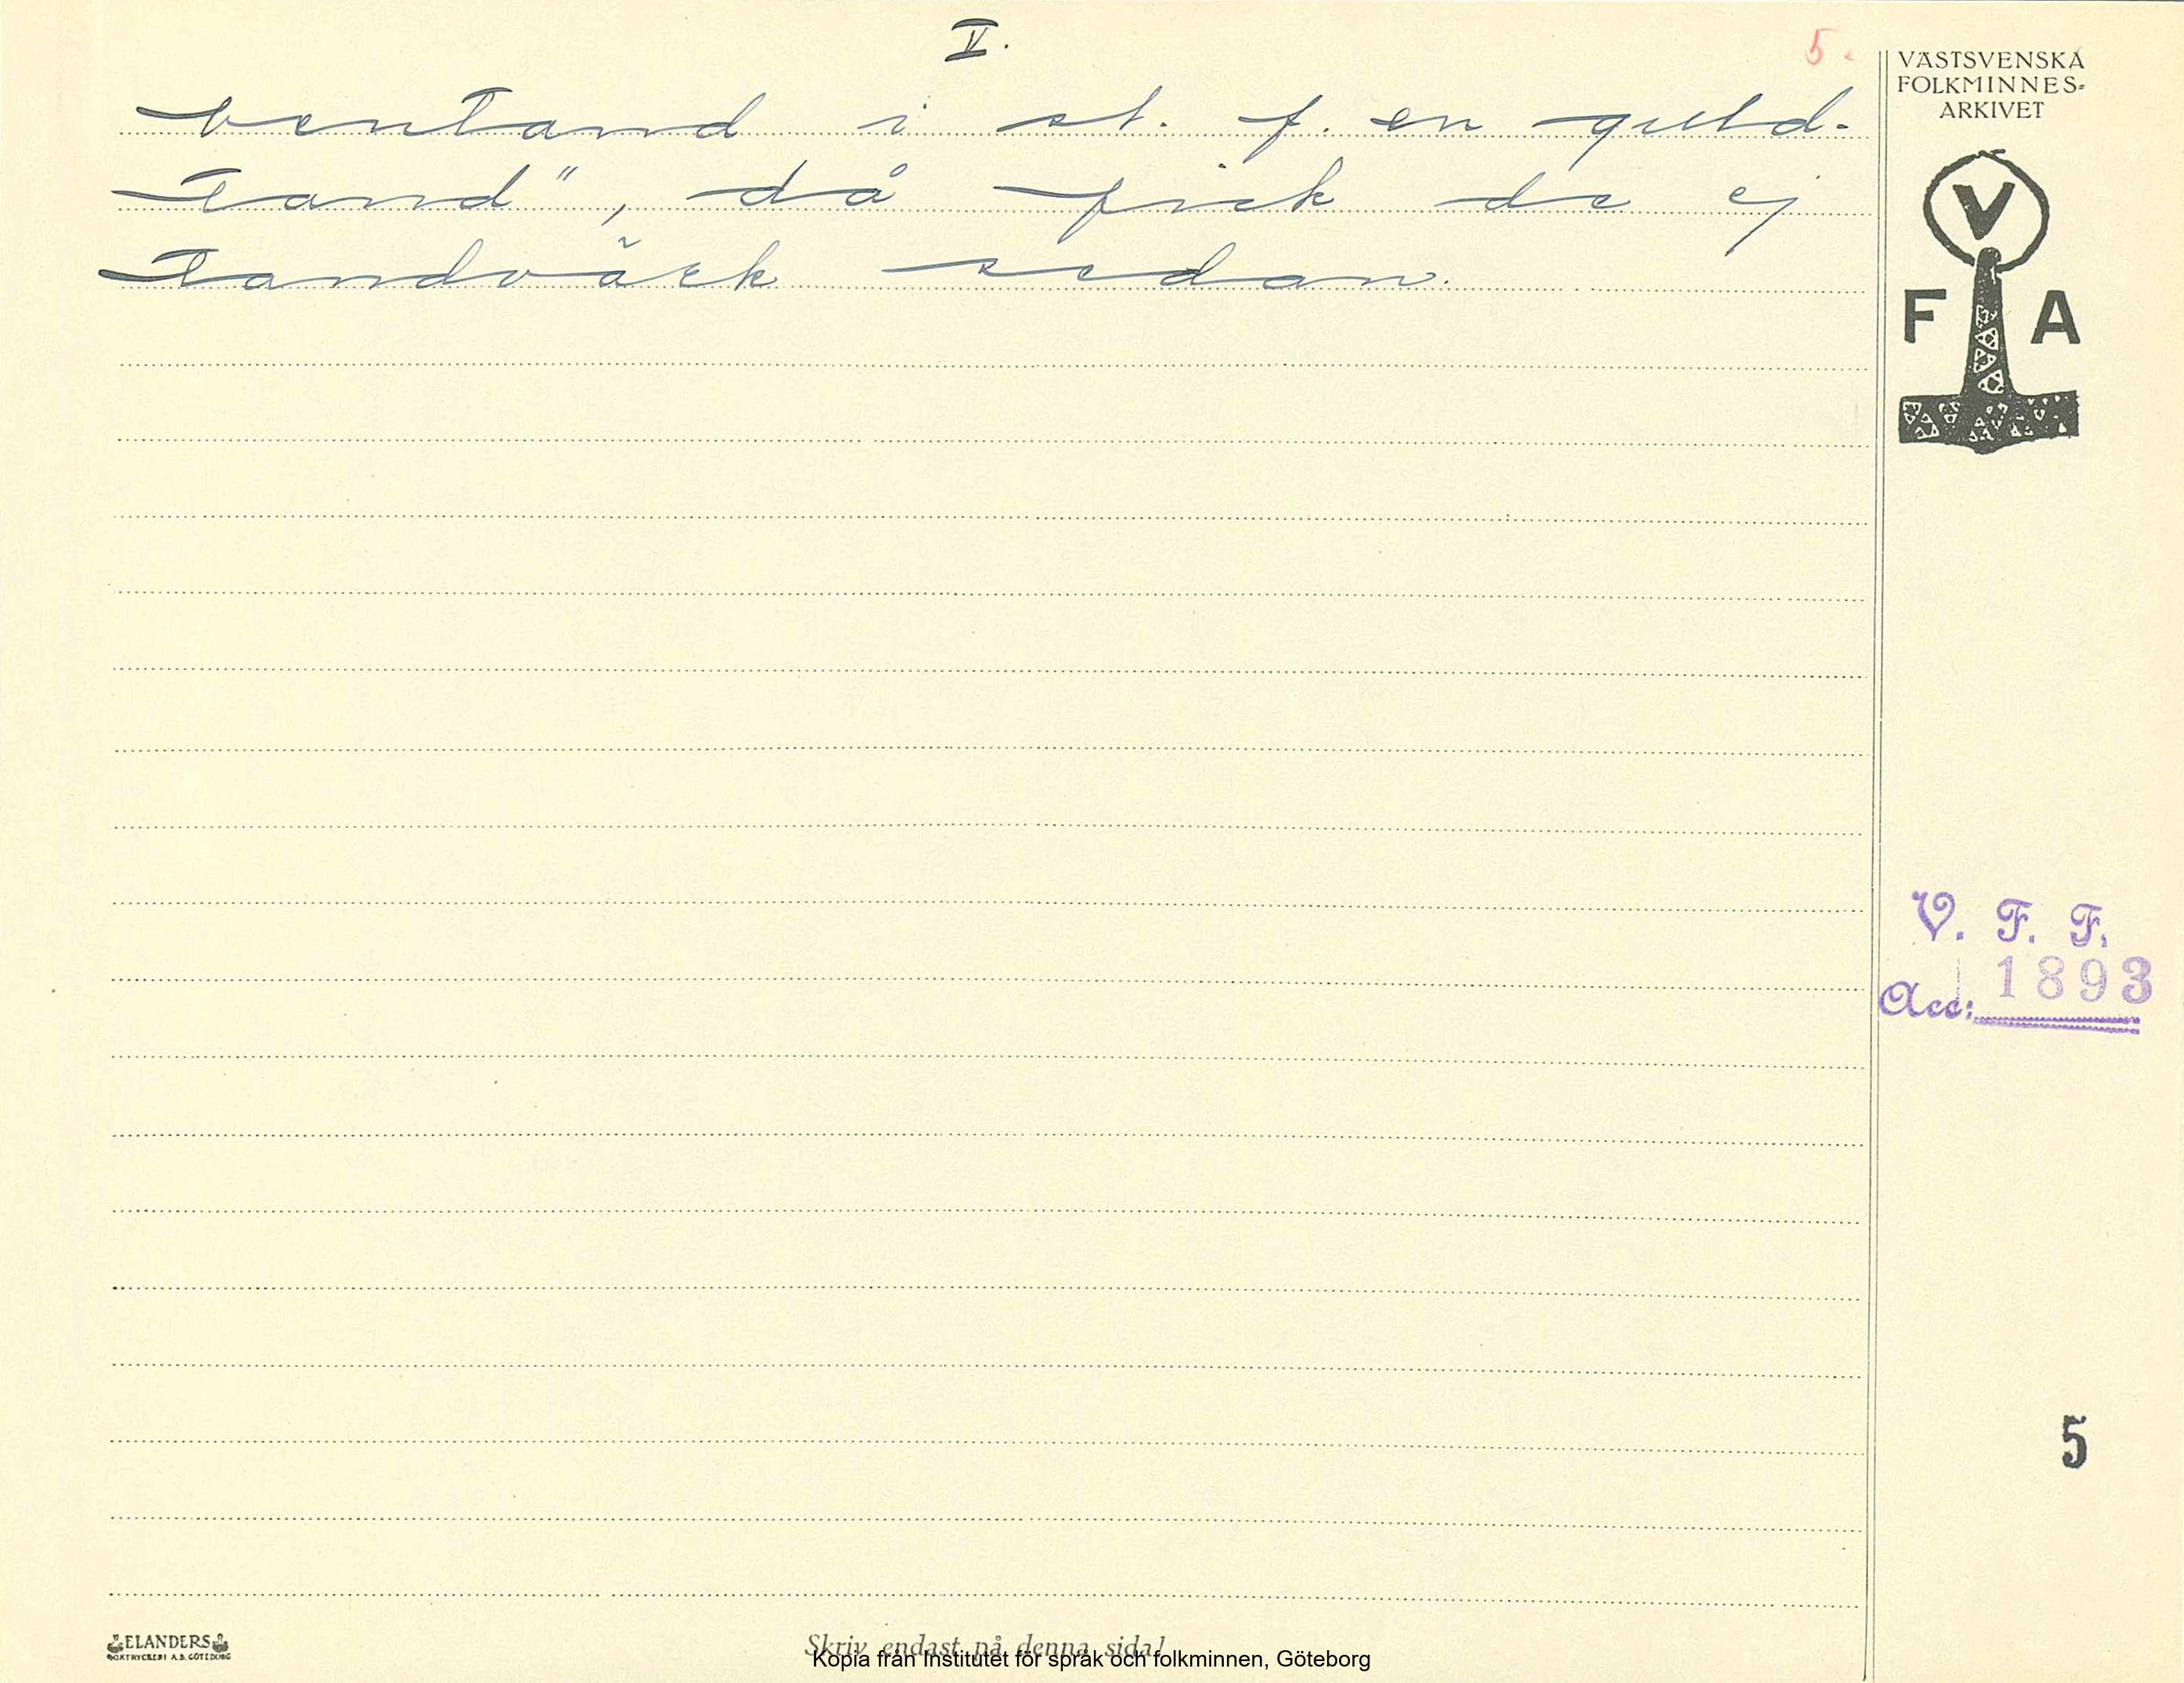 V.
5.
bentand i st. f. en guld-
tand", då fick de ej
tandvärk sedan.
VÄSTSVENSKA
FOLKMINNES-
ARKIVET
V
F A
V. F. F.
Acc: 1893
5
ELANDERS
BOKTRYCKERI A.B. GÖTEBORG
Skriv endast på denna sida!
Kopia från Institutet för språk och folkminnen, Göteborg